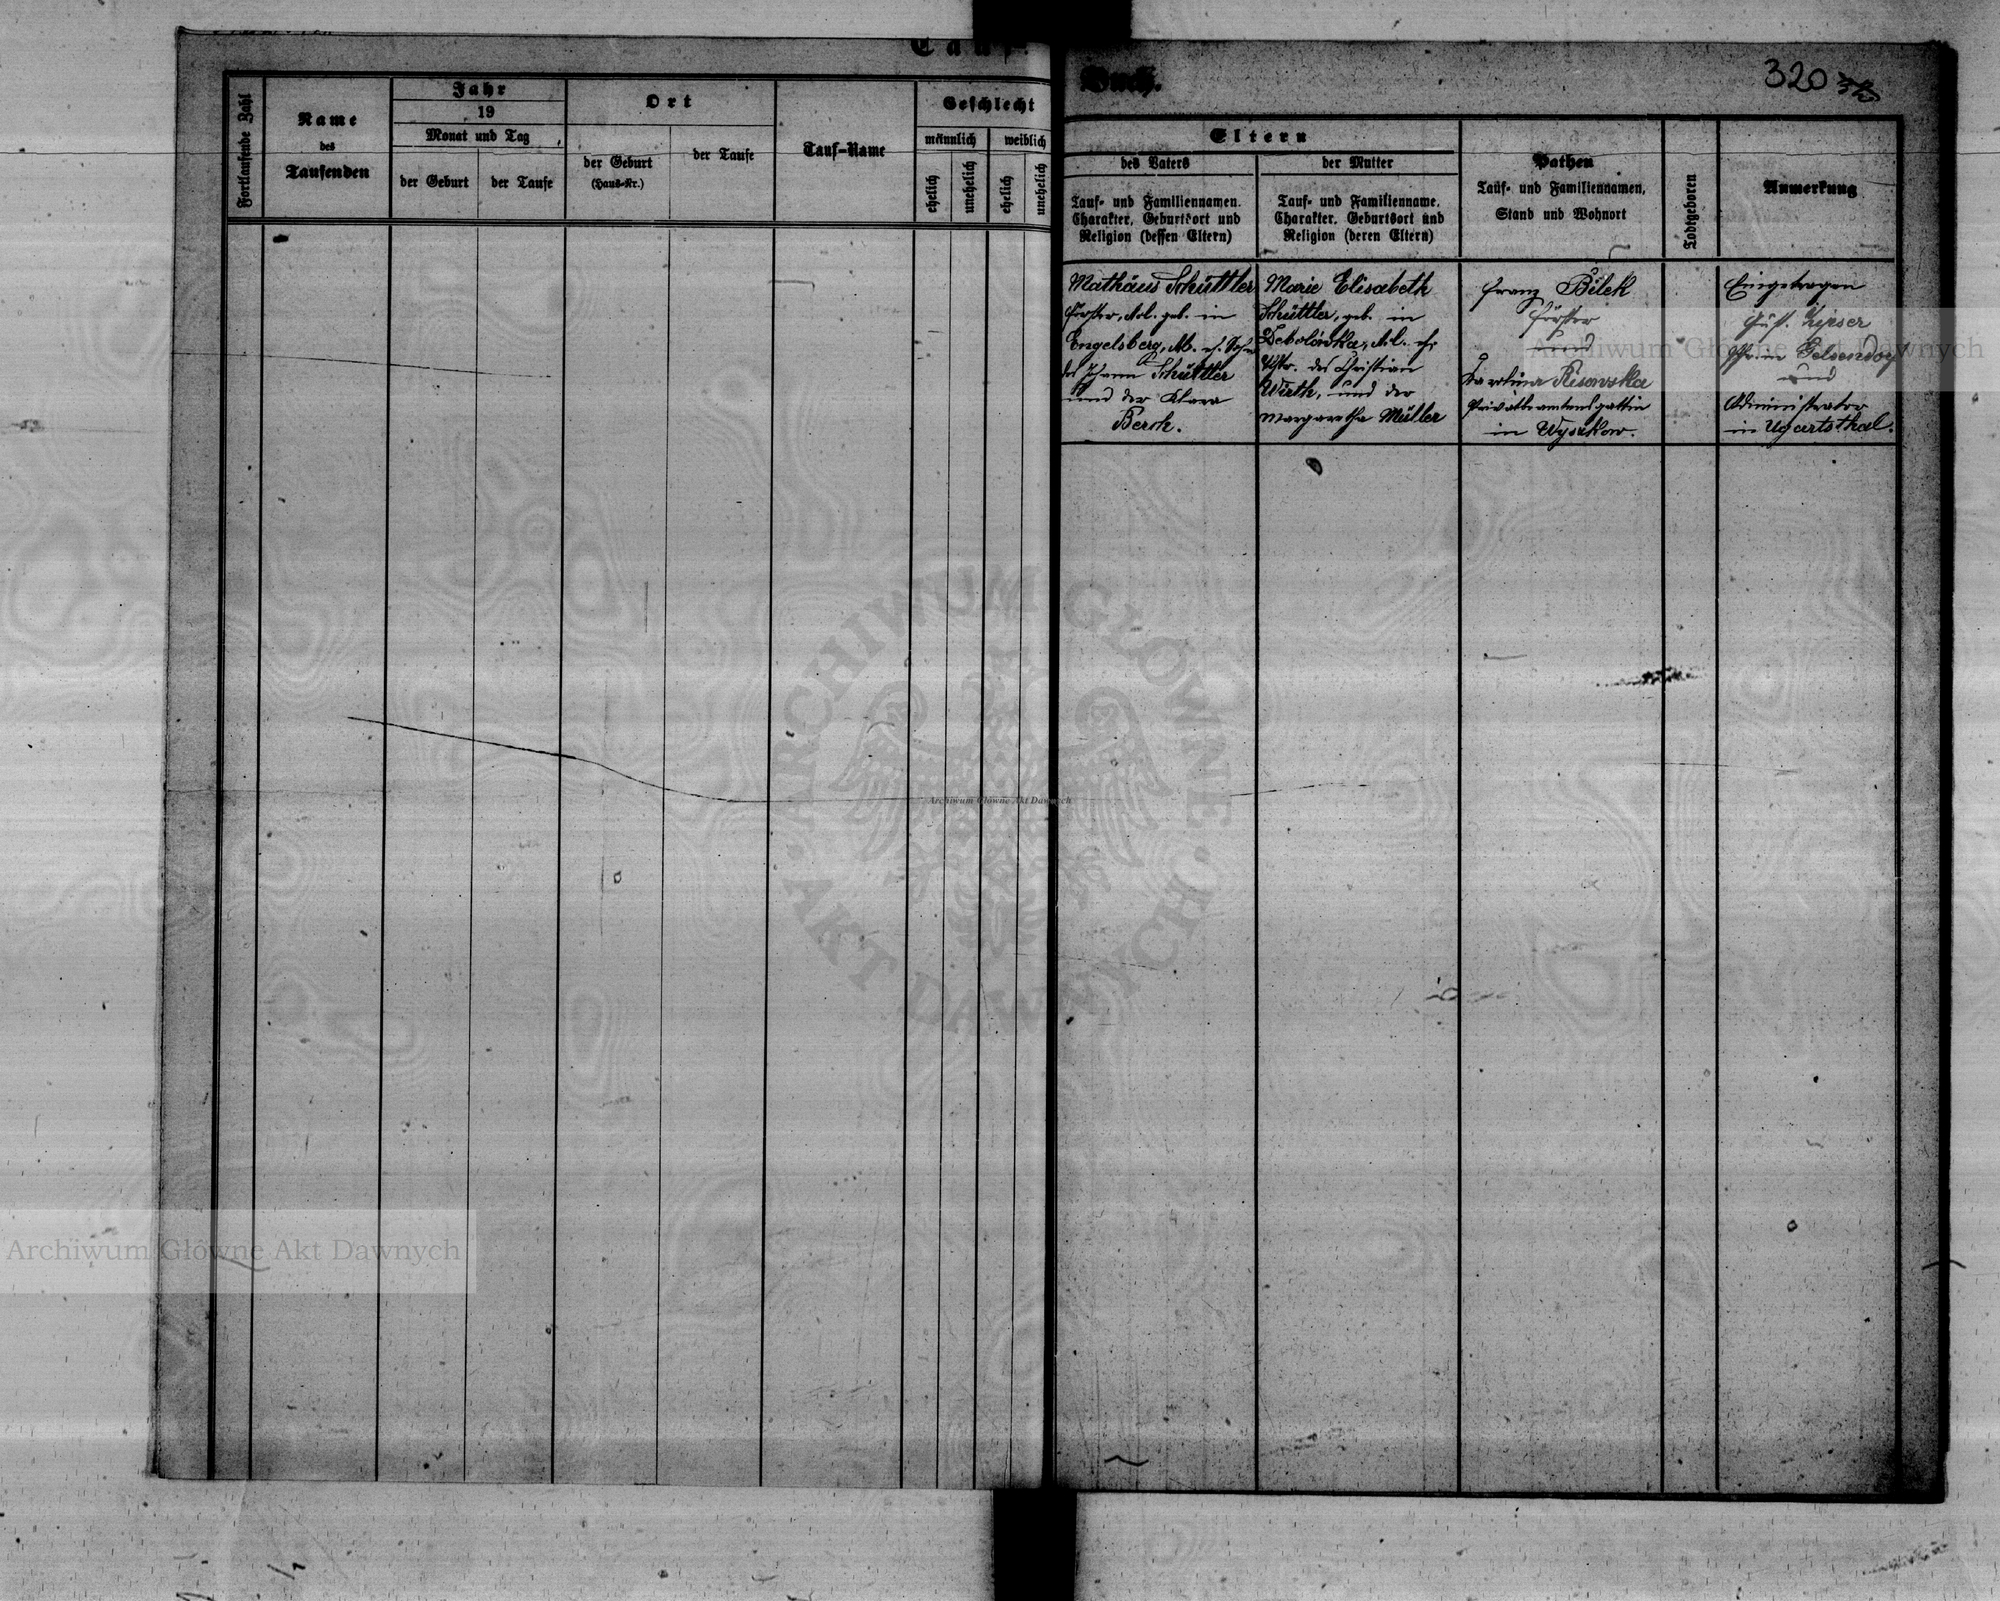 Tauf-
Buch.
320
Fortlaufende Zahl
Name
des
Taufenden
Jahr
19
Monat und Tag
der Geburt
der Taufe
Ort
der Geburt
(Haus-Nr.)
der Taufe
Tauf-Name
Geschlecht
männlich
weiblich
ehelich
unehelich
ehelich
unehelich
Eltern
des Vaters
Tauf- und Familiennamen.
Charakter, Geburtsort und
Religion (dessen Eltern)
der Mutter
Tauf- und Familienname.
Charakter, Geburtsort und
Religion (deren Eltern)
Pathen
Tauf- und Familiennamen,
Stand und Wohnort
Todtgeboren
Anmerkung
Mathäus Schüttler
Förster, geb. in
Engelsberg,
des Johann Schüttler
und der Klara
Bersch.
Marie Elisabeth
Schüttler, geb. in
Debolówka,
des Christian
Wirth, und der
Margaretha Müller
Franz Bilek
Förster
und
Karolina
Privatbeamtensgattin
in Wyszkow.
Eingetragen
Lipser
in Gelsendorf
und
Administrator
in Ugartsthal.
Archiwum Główne Akt Dawnych
ARCHIWUM GŁÓWNE
AKT DAWNYCH
Archiwum Główne Akt Dawnych
Archiwum Główne Akt Dawnych